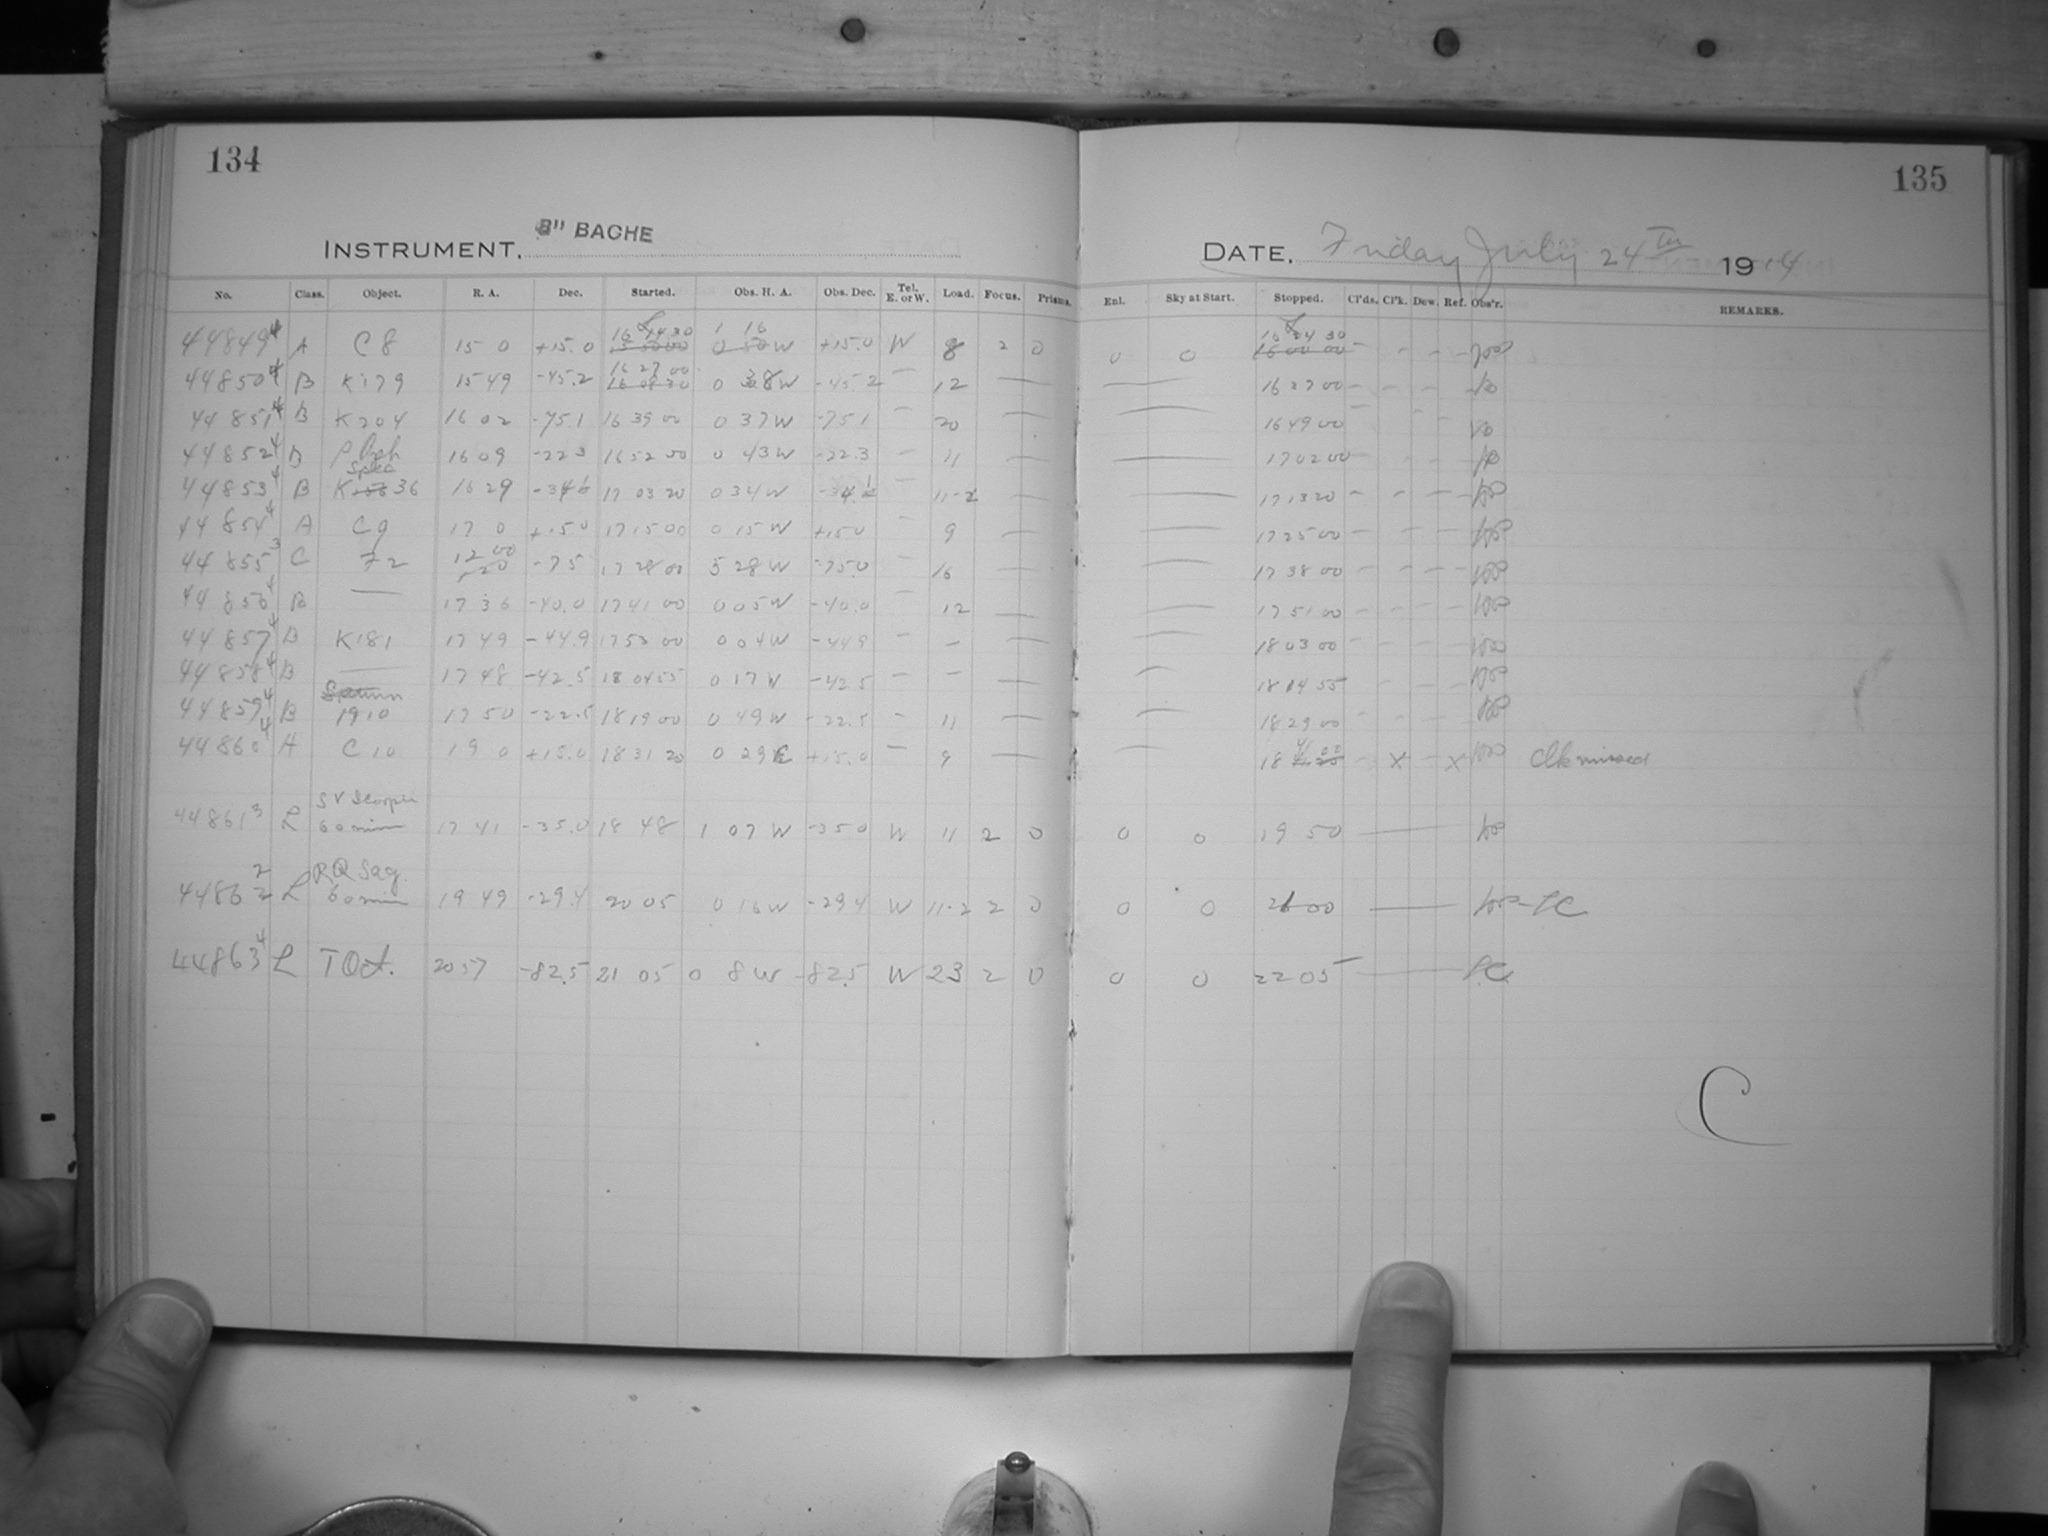 134
135
INSTRUMENT. 8" BACHE
DATE. Friday July 24th 1914
No. Class. Object. R. A. Dec. Started. Obs. H. A. Obs. Dec. Tel. E. or W. Load. Focus. Prisms. Enl. Sky at Start. Stopped. Cl'ds. Cl'k. Dew. Ref. Obs'r. REMARKS.
16 14 30 1 16 16 24 30
44849 4 A C8 15 0 +15.0 0 50 W +15.0 W 8 2 0 0 0 16 00 00 - - - -
16 27 00
44850 4 B K179 15 49 -45.2 0 38 W -45.2 - 12 — — — 16 37 00 - - - -
44851 4 B K204 16 02 -75.1 16 39 00 0 37 W -75.1 - 20 — — 16 49 00 - - -
44852 4 B 16 09 -22.3 16 52 00 0 43 W -22.3 - 11 — — 17 02 00 - - - -
44853 4 B 36 16 29 17 03 20 0 34 W - 11-2 — — 17 13 20 - - - -
44854 4 A C9 17 0 +15.0 17 15 00 0 15 W +15.0 - 9 — — 17 25 00 - - - -
44855 3 C F2 12 00 -75 17 28 00 5 28 W -75.0 - 16 — — 17 38 00 - - - -
44856 4 B — 17 36 -40.0 17 41 00 0 05 W -40.0 - 12 — — 17 51 00 - - - -
44857 4 B K181 17 49 -44.9 17 53 00 0 04 W -44.9 - - — — 18 03 00 - - - -
44858 4 B — 17 48 -42.5 18 04 55 0 17 W -42.5 - - — — 18 14 55 - - - -
Saturn
44859 4 B 1910 17 50 -22.5 18 19 00 0 49 W -22.5 - 11 — — 18 29 00 - - - -
44860 4 A C10 19 0 +15.0 18 31 20 0 29 E +15.0 - 9 — — 18 41 00 - X - X Clk missed
SV Scorpii
44861 3 L 60 min 17 41 -35.0 18 48 1 07 W -35.0 W 11 2 0 0 0 19 50 —
RQ Sag.
44862 2 L 60 min 19 49 -29.4 20 05 0 16 W -29.4 W 11-2 2 0 0 0 21 00 —
44863 4 L T Oct. 20 57 -82.5 21 05 0 8 W -82.5 W 23 2 0 0 0 22 05 —
C